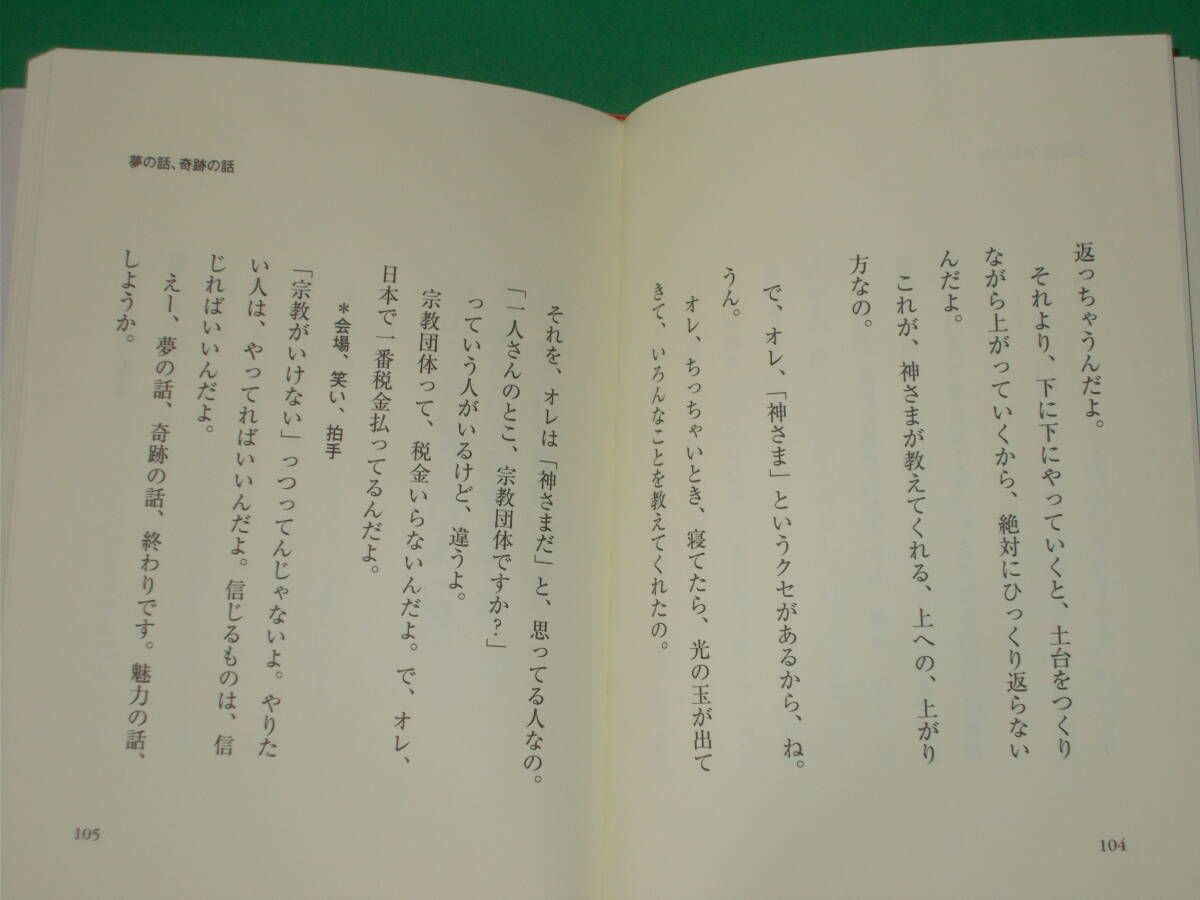 返っちゃうんだよ。
それより、下に下にやっていくと、土台をつくり
ながら上がっていくから、絶対にひっくり返らない
んだよ。
これが、神さまが教えてくれる、上への、上がり
方なの。
で、オレ、「神さま」というクセがあるから、ね。
うん。
オレ、ちっちゃいとき、寝てたら、光の玉が出て
きて、いろんなことを教えてくれたの。
104
夢の話、奇跡の話
それを、オレは「神さまだ」と、思ってる人なの。
「一人さんのとこ、宗教団体ですか?」
っていう人がいるけど、違うよ。
宗教団体って、税金いらないんだよ。で、オレ、
日本で一番税金払ってるんだよ。
＊会場、笑い、拍手
「宗教がいけない」っつってんじゃないよ。やりた
い人は、やってればいいんだよ。信じるものは、信
じればいいんだよ。
えー、夢の話、奇跡の話、終わりです。魅力の話、
しようか。
105